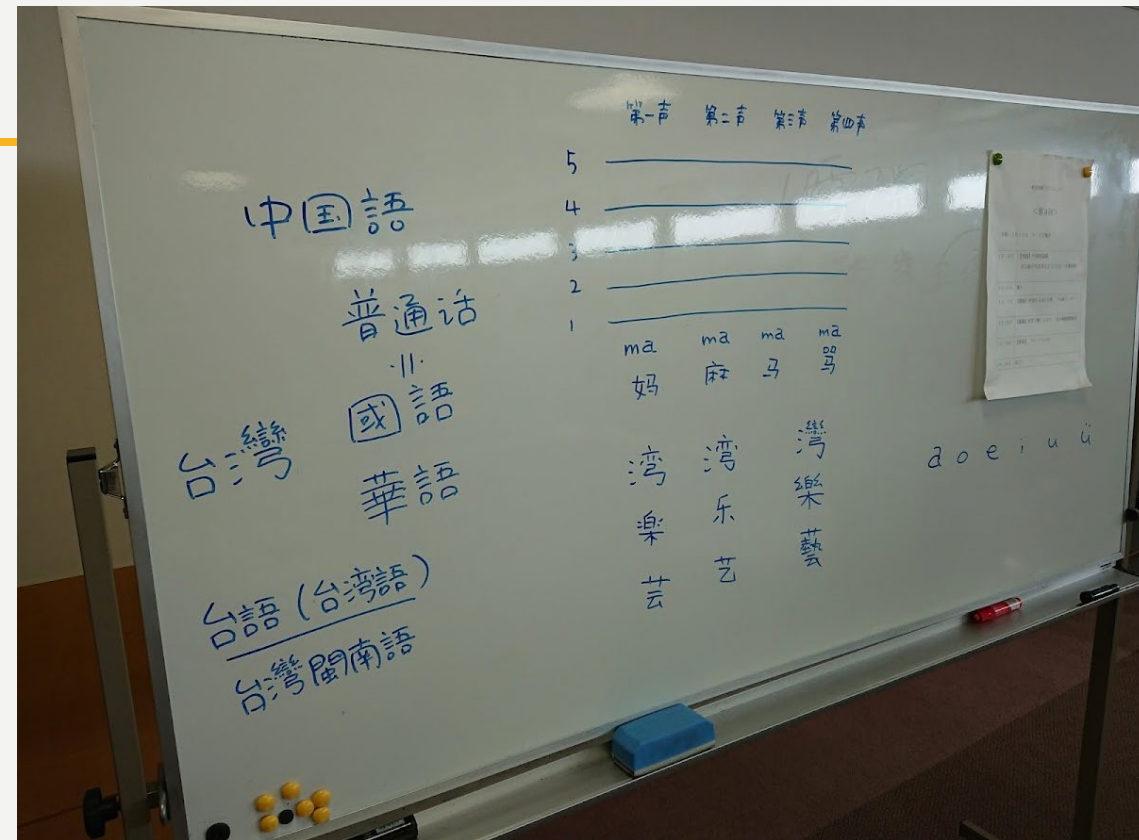 中国語
普通话
·||·
國語
華語
台灣
台語(台湾語)
台灣閩南語
第一声 第二声 第三声 第四声
5
4
3
2
1
ma ma ma ma
妈 麻 马 骂
湾 湾 灣
楽 乐 樂
芸 艺 藝
a o e i u ü